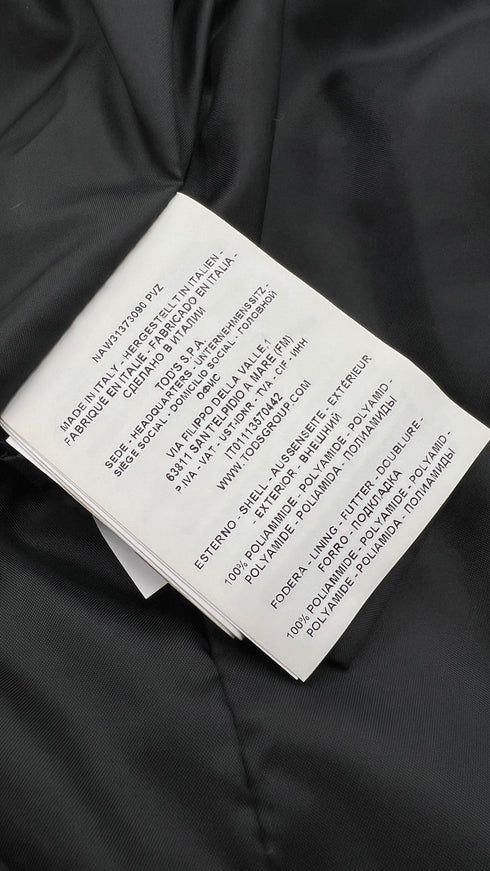 NAW31373090 PVZ
MADE IN ITALY - HERGESTELLT IN ITALIEN -
FABRIQUE EN ITALIE- FABRICADO EN ITALIA -
СДЕЛАНО В ИТАЛИИ
TOD'S S.P.A.
SEDE - HEADQUARTERS - UNTERNEHMENSSITZ -
SIÈGE SOCIAL - DOMICILIO SOCIAL - ГОЛОВНОЙ
ОФИС
VIA FILIPPO DELLA VALLE,1
63811 SANT'ELPIDIO A MARE (FM)
P.IVA - VAT - UST-IDNR - TVA - CIF - ИНН
IT01113570442
WWW.TODSGROUP.COM
ESTERNO - SHELL - AUSSENSEITE - EXTÉRIEUR
- EXTERIOR - ВНЕШНИЙ
100% POLIAMMIDE - POLYAMIDE - POLYAMID -
POLYAMIDE - POLIAMIDA - ПОЛИАМИДЫ
FODERA - LINING - FUTTER - DOUBLURE -
FORRO - ПОДКЛАДКА
100% POLIAMMIDE - POLYAMIDE - POLYAMID -
POLYAMIDE - POLIAMIDA - ПОЛИАМИДЫ